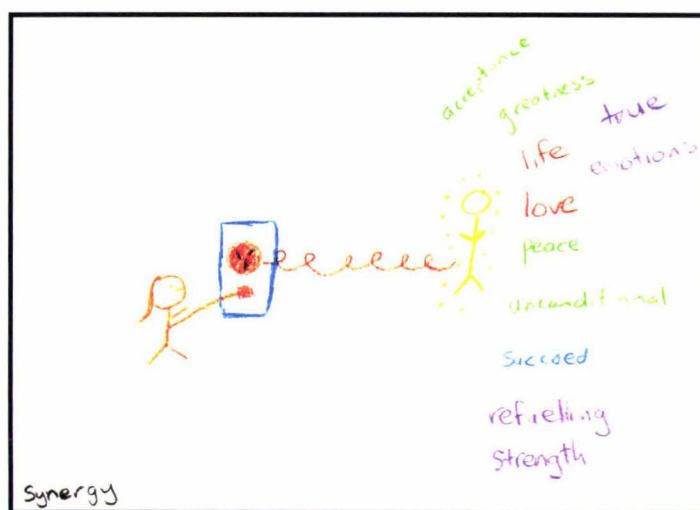 acceptance
greatness
true
life
emotions
love
peace
unconditional
succeed
refueling
strength
Synergy